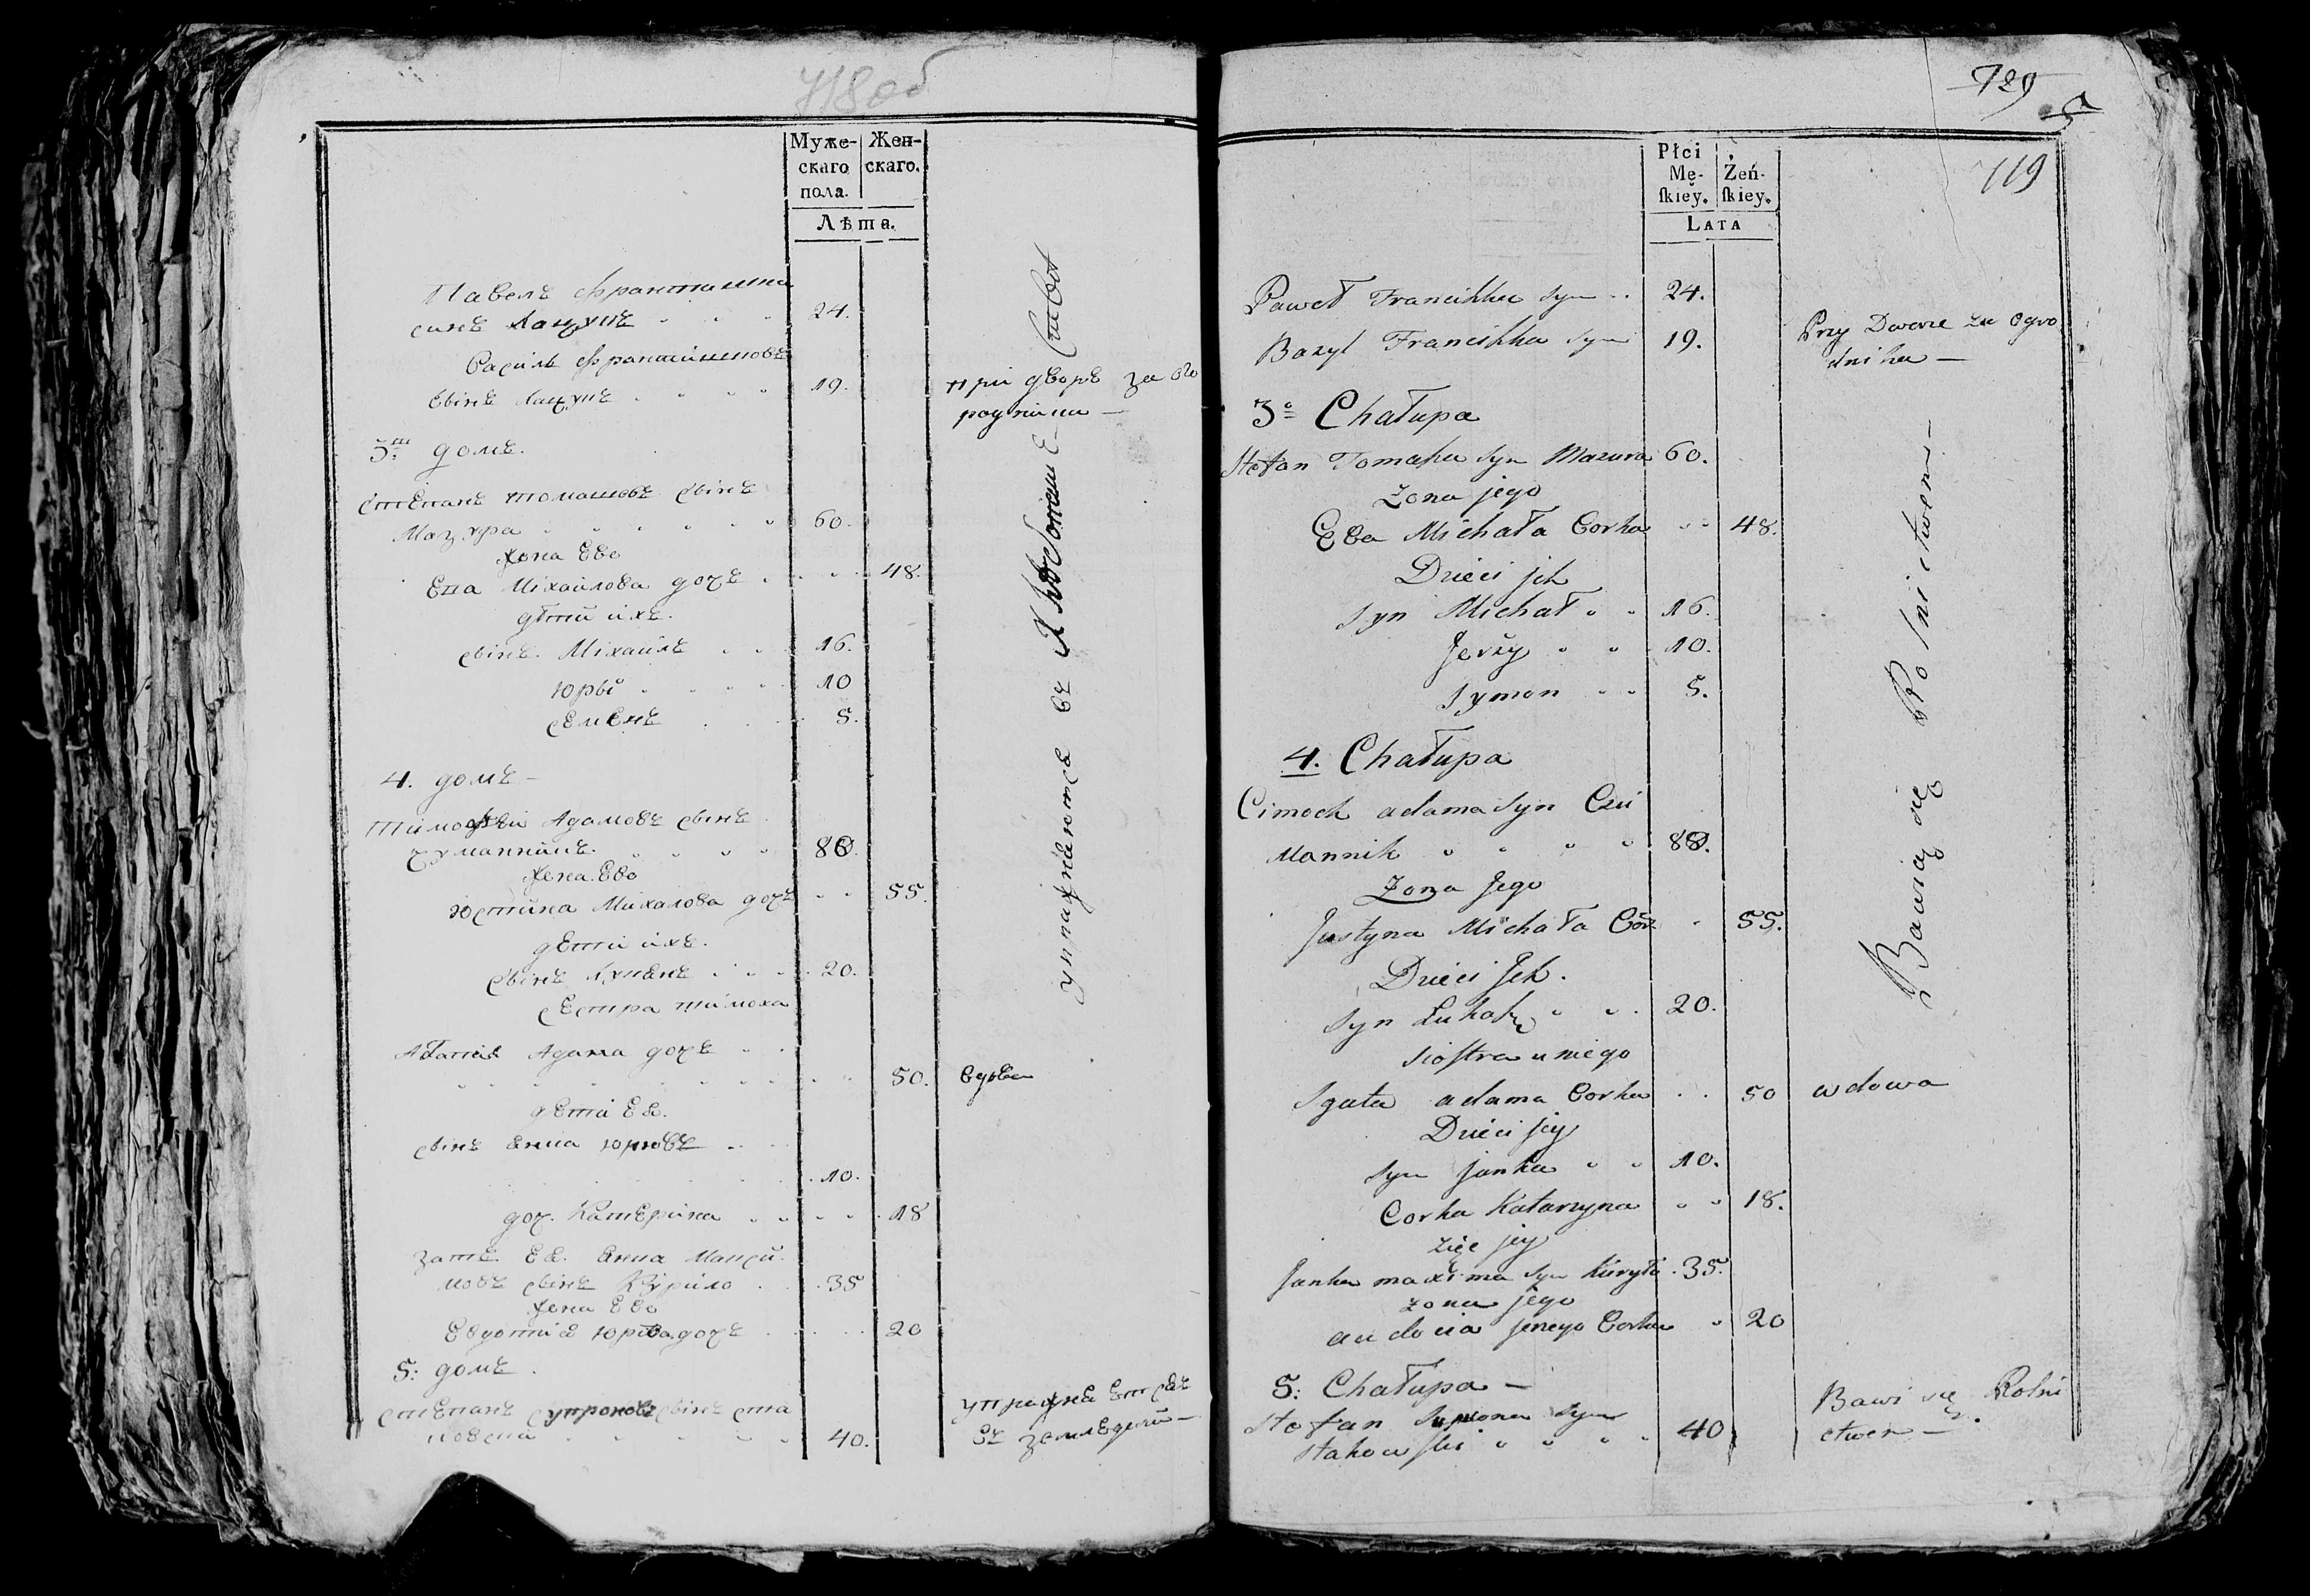 718об
Муже-
скаго
пола.
Жен-
скаго.
Лѣта.
Павелъ Францишка
синъ Лацукъ 24.
Васіль Францишковъ
свінъ Лацукъ 19. при дворѣ за ого
родніка —
упражнѣются въ Хлѣбопашествѣ
3. домъ.
Стѣпанъ Томашовъ свінъ
Мазура 60.
жона Его
Ева Міхайлова дочъ 48.
дѣти ихъ.
свінъ Міхаилъ 16.
Юрвй 10
Семенъ 5.
4. домъ —
Тимофѣй Адамовъ свінъ
80.
жена Его
Юстина Михалова дочъ 55.
дѣти ихъ.
свінъ 20.
сестра Тимоха
Агапія Адама дочъ
50. вдова
дѣти Её.
свінъ Янка Юрковъ
10.
доч. Катерина 18
зять Её. Янка Макси
мовъ свінъ Курило 35
жена Его
Евдокия Юрієва дочъ 20
5: домъ.
Стѣпанъ Супроновъ свінъ Ста
ковскій 40. упражнѣется
въ земледелій —
729
5
119
Płci
Mę-
skiey.
Żeń-
skiey.
LATA
Paweł Franciszka Syn 24.
Bazyl Franciszka Syn 19. Przy Dworze za Ogro
dnika —
Bawią się Rolnictwem —
3o Chałupa
Stefan Tomasza Syn Mazura 60.
Zona jego
Ewa Michała Corka 48.
Dzieci jch
Syn Michał 16.
Jerzy 10.
Symon 5.
4. Chałupa
Cimoch adama Syn Czu
Mannik 80.
Zona Jego
Justyna Michała Cór 55.
Dzieci Jch.
Syn Łukasz 20.
Siostra u niego
Agata adama Corka 50 wdowa
Dzieci jey
Syn Janka 10.
Corka Katarzyna 18.
zięc jey
Janka maxima Syn Kuryło 35.
zona jego
audocia Jerzego Corka 20
5: Chałupa —
Stefan Suprona Syn
Stakowski 40 Bawi się Rolni
ctwem —